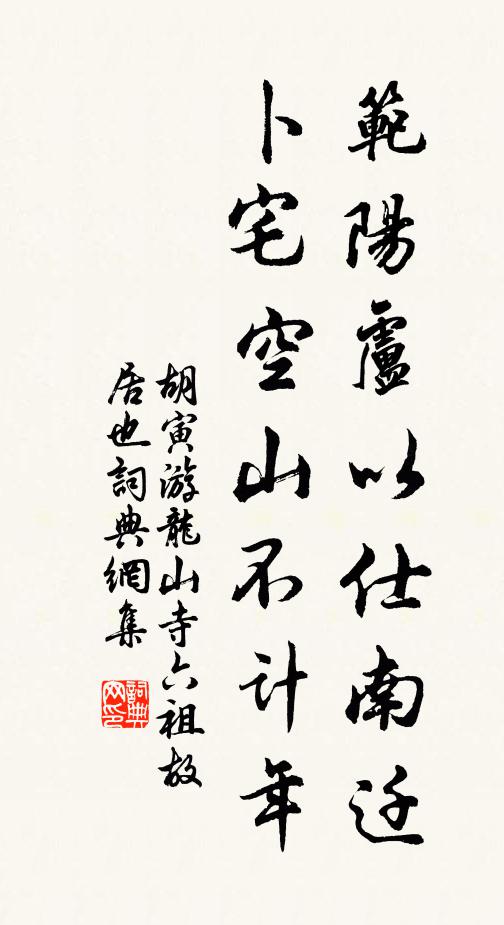 範陽盧以仕南迁
卜宅空山不计年
胡寅游龍山寺六祖故
居也詞典網集
詞典網印